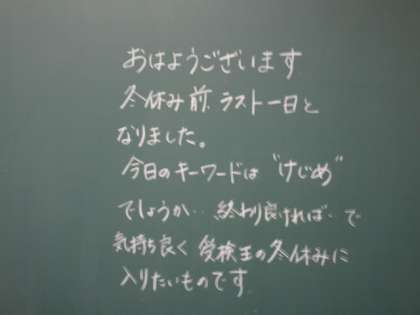 おはようございます
冬休み前 ラスト一日と
なりました。
今日のキーワードは"けじめ"
でしょうか… 終わり良ければ…で
気持ち良く 受検生の冬休みに
入りたいものです